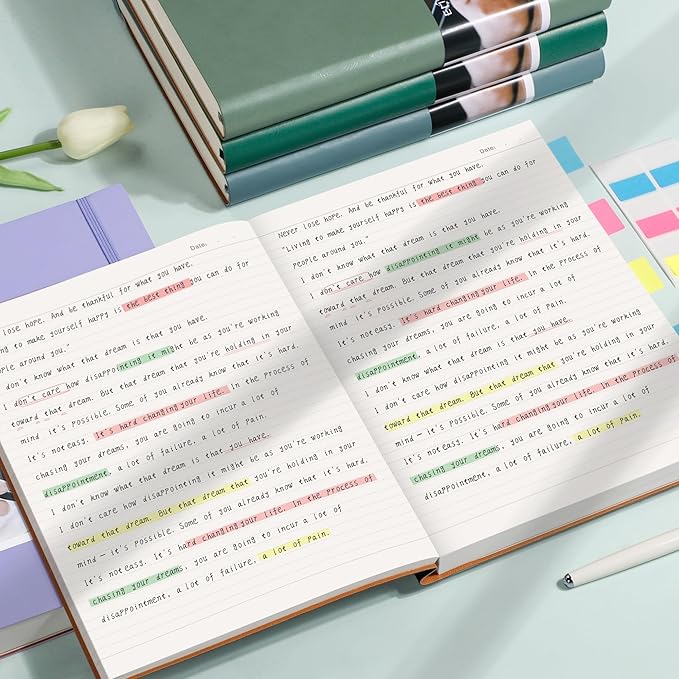 Date:
lose hope. And be thankful for what you have.
to make yourself happy is the best thing you can do for
around you."
don't know what that dream is that you have.
I don't care how disappointing it might be as you're working
toward that dream. But that dream that you're holding in your
mind it's possible. Some of you already know that it's hard.
It's not easy. It's hard changing your life. In the process of
chasing your dreams, you are going to incur a lot of
disappointment, a lot of failure, a lot of pain.
I don't know what that dream is that you have.
I don't care how disappointing it might be as you're working
toward that dream. But that dream that you're holding in your
mind — it's possible. Some of you already know that it's hard.
It's not easy. It's hard changing your life. In the process of
chasing your dreams, you are going to incur a lot of
disappointment, a lot of failure, a lot of pain.
Date:
Never lose hope. And be thankful for what you have.
"Living to make yourself happy is the best thing you can do for
people around you."
I don't know what that dream is that you have.
I don't care how disappointing it might be as you're working
toward that dream. But that dream that you're holding in your
mind it's possible. Some of you already know that it's hard.
It's not easy. It's hard changing your life. In the process of
chasing your dreams, you are going to incur a lot of
disappointment, a lot of failure, a lot of pain.
I don't know what that dream is that you have.
I don't care how disappointing it might be as you're working
toward that dream. But that dream that you're holding in your
mind — it's possible. Some of you already know that it's hard.
It's not easy. It's hard changing your life. In the process of
chasing your dreams, you are going to incur a lot of
disappointment, a lot of failure, a lot of pain.